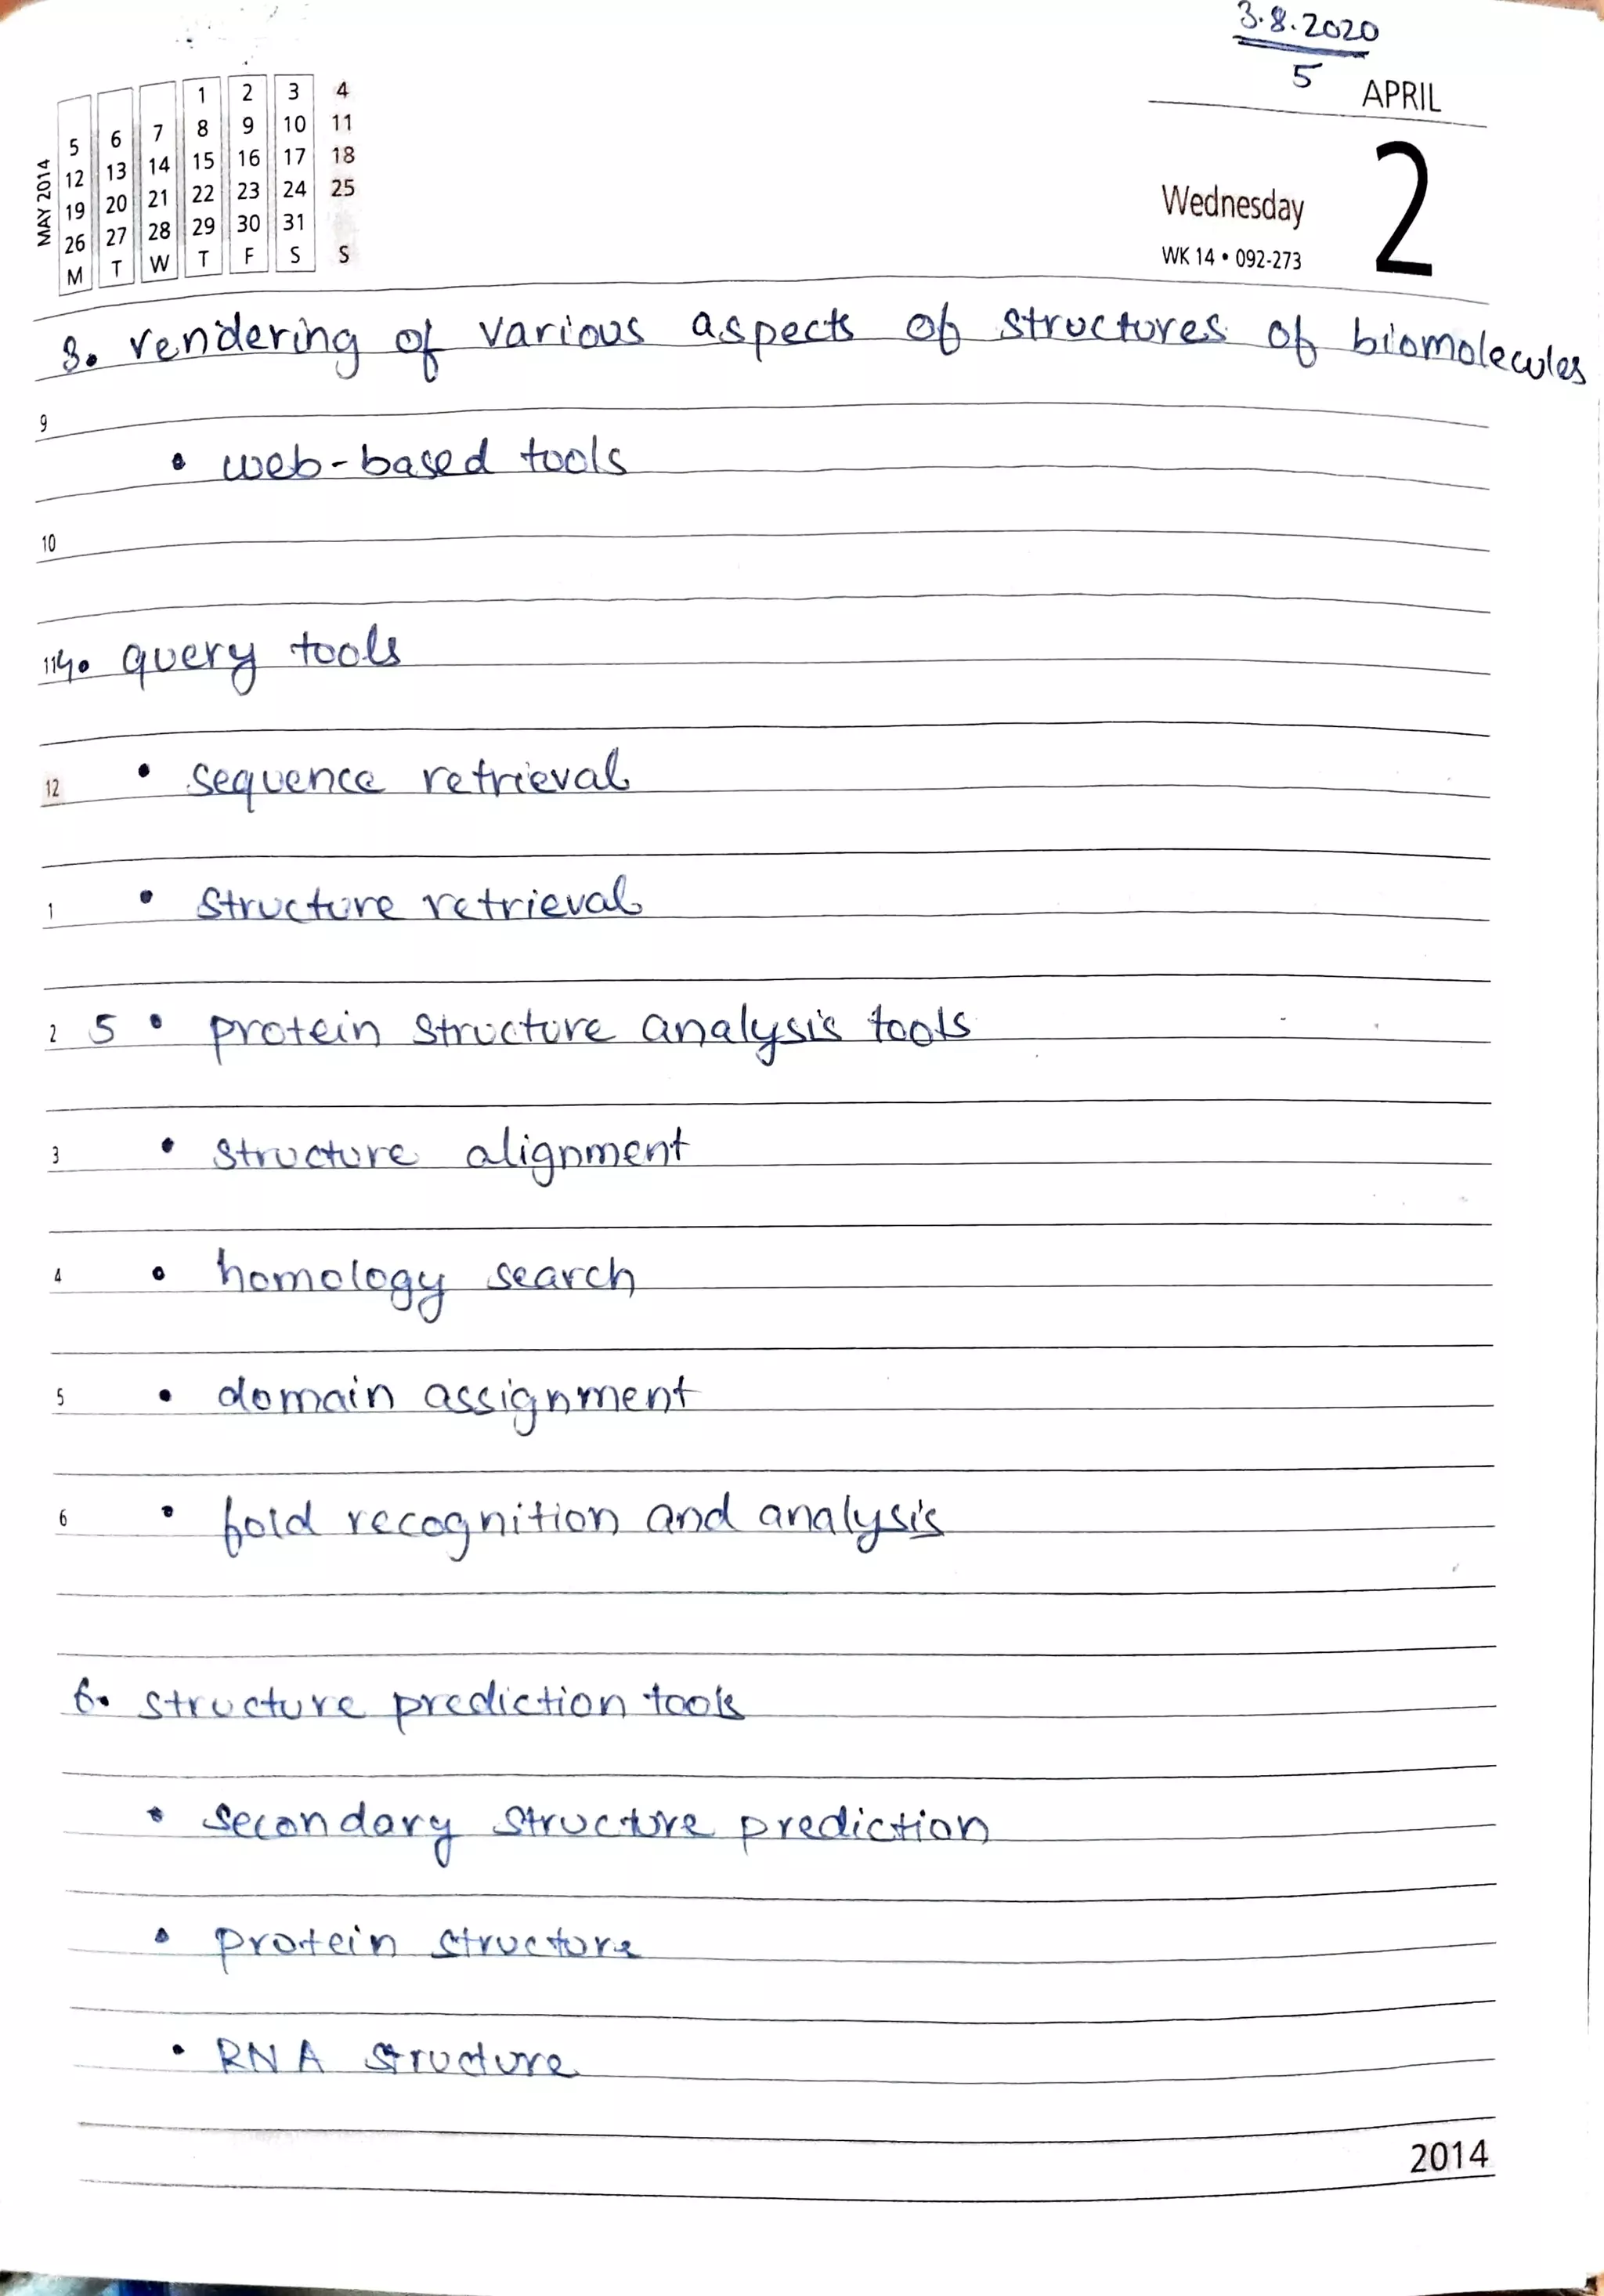 3.8.2020
5
APRIL
2
Wednesday
WK 14 • 092-273
MAY 2014
1 2 3 4
5 6 7 8 9 10 11
12 13 14 15 16 17 18
19 20 21 22 23 24 25
26 27 28 29 30 31
M T W T F S S
3. rendering of various aspects of structures of biomolecules
9
• web-based tools
10
11 4. query tools
12 • sequence retrieval
1 • structure retrieval
2 5 • protein structure analysis tools
3 • structure alignment
4 • homology search
5 • domain assignment
6 • fold recognition and analysis
6. structure prediction tools
• secondary structure prediction
• protein structure
• RNA structure
2014